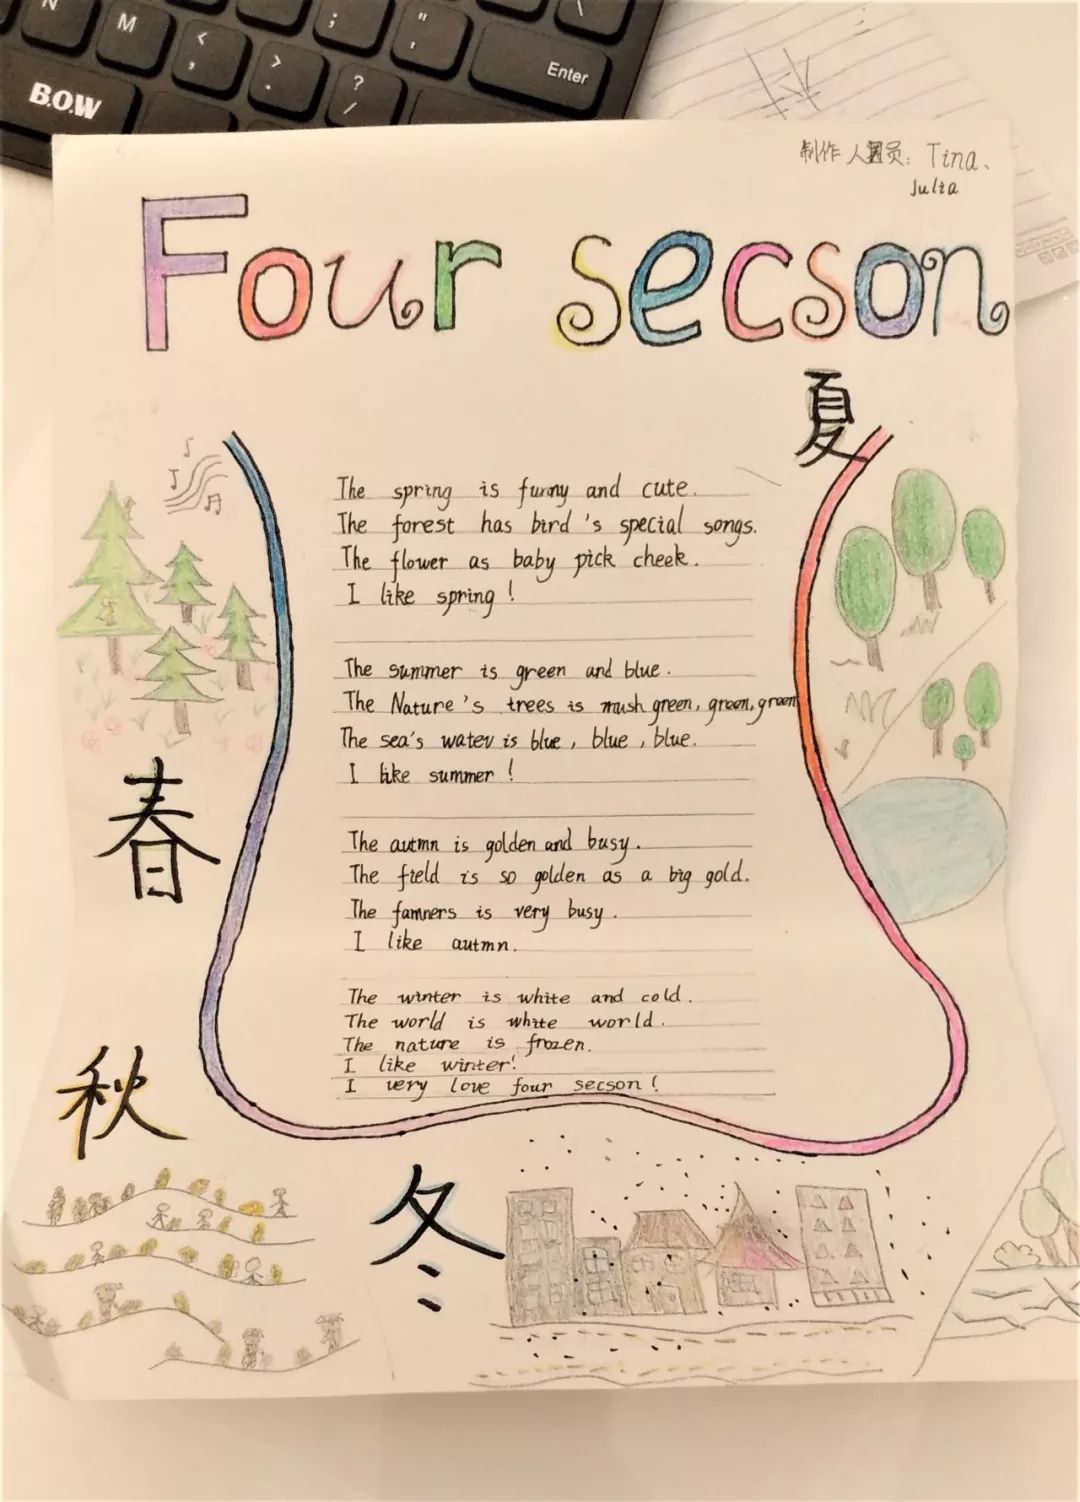 N
M
<
,
>
.
?
/
:
;
"
'
\
Enter
B.O.W
制作人员: Tina、
Julia
Four secson
夏
The spring is funny and cute.
The forest has bird's special songs.
The flower as baby pick cheek.
I like spring!
The summer is green and blue.
The Nature's trees is mush green, green, green
The sea's water is blue, blue, blue.
I like summer!
春
The autmn is golden and busy.
The field is so golden as a big gold.
The famners is very busy.
I like autmn.
The winter is white and cold.
The world is white world.
The nature is frozen.
I like winter!
I very love four secson!
秋
冬